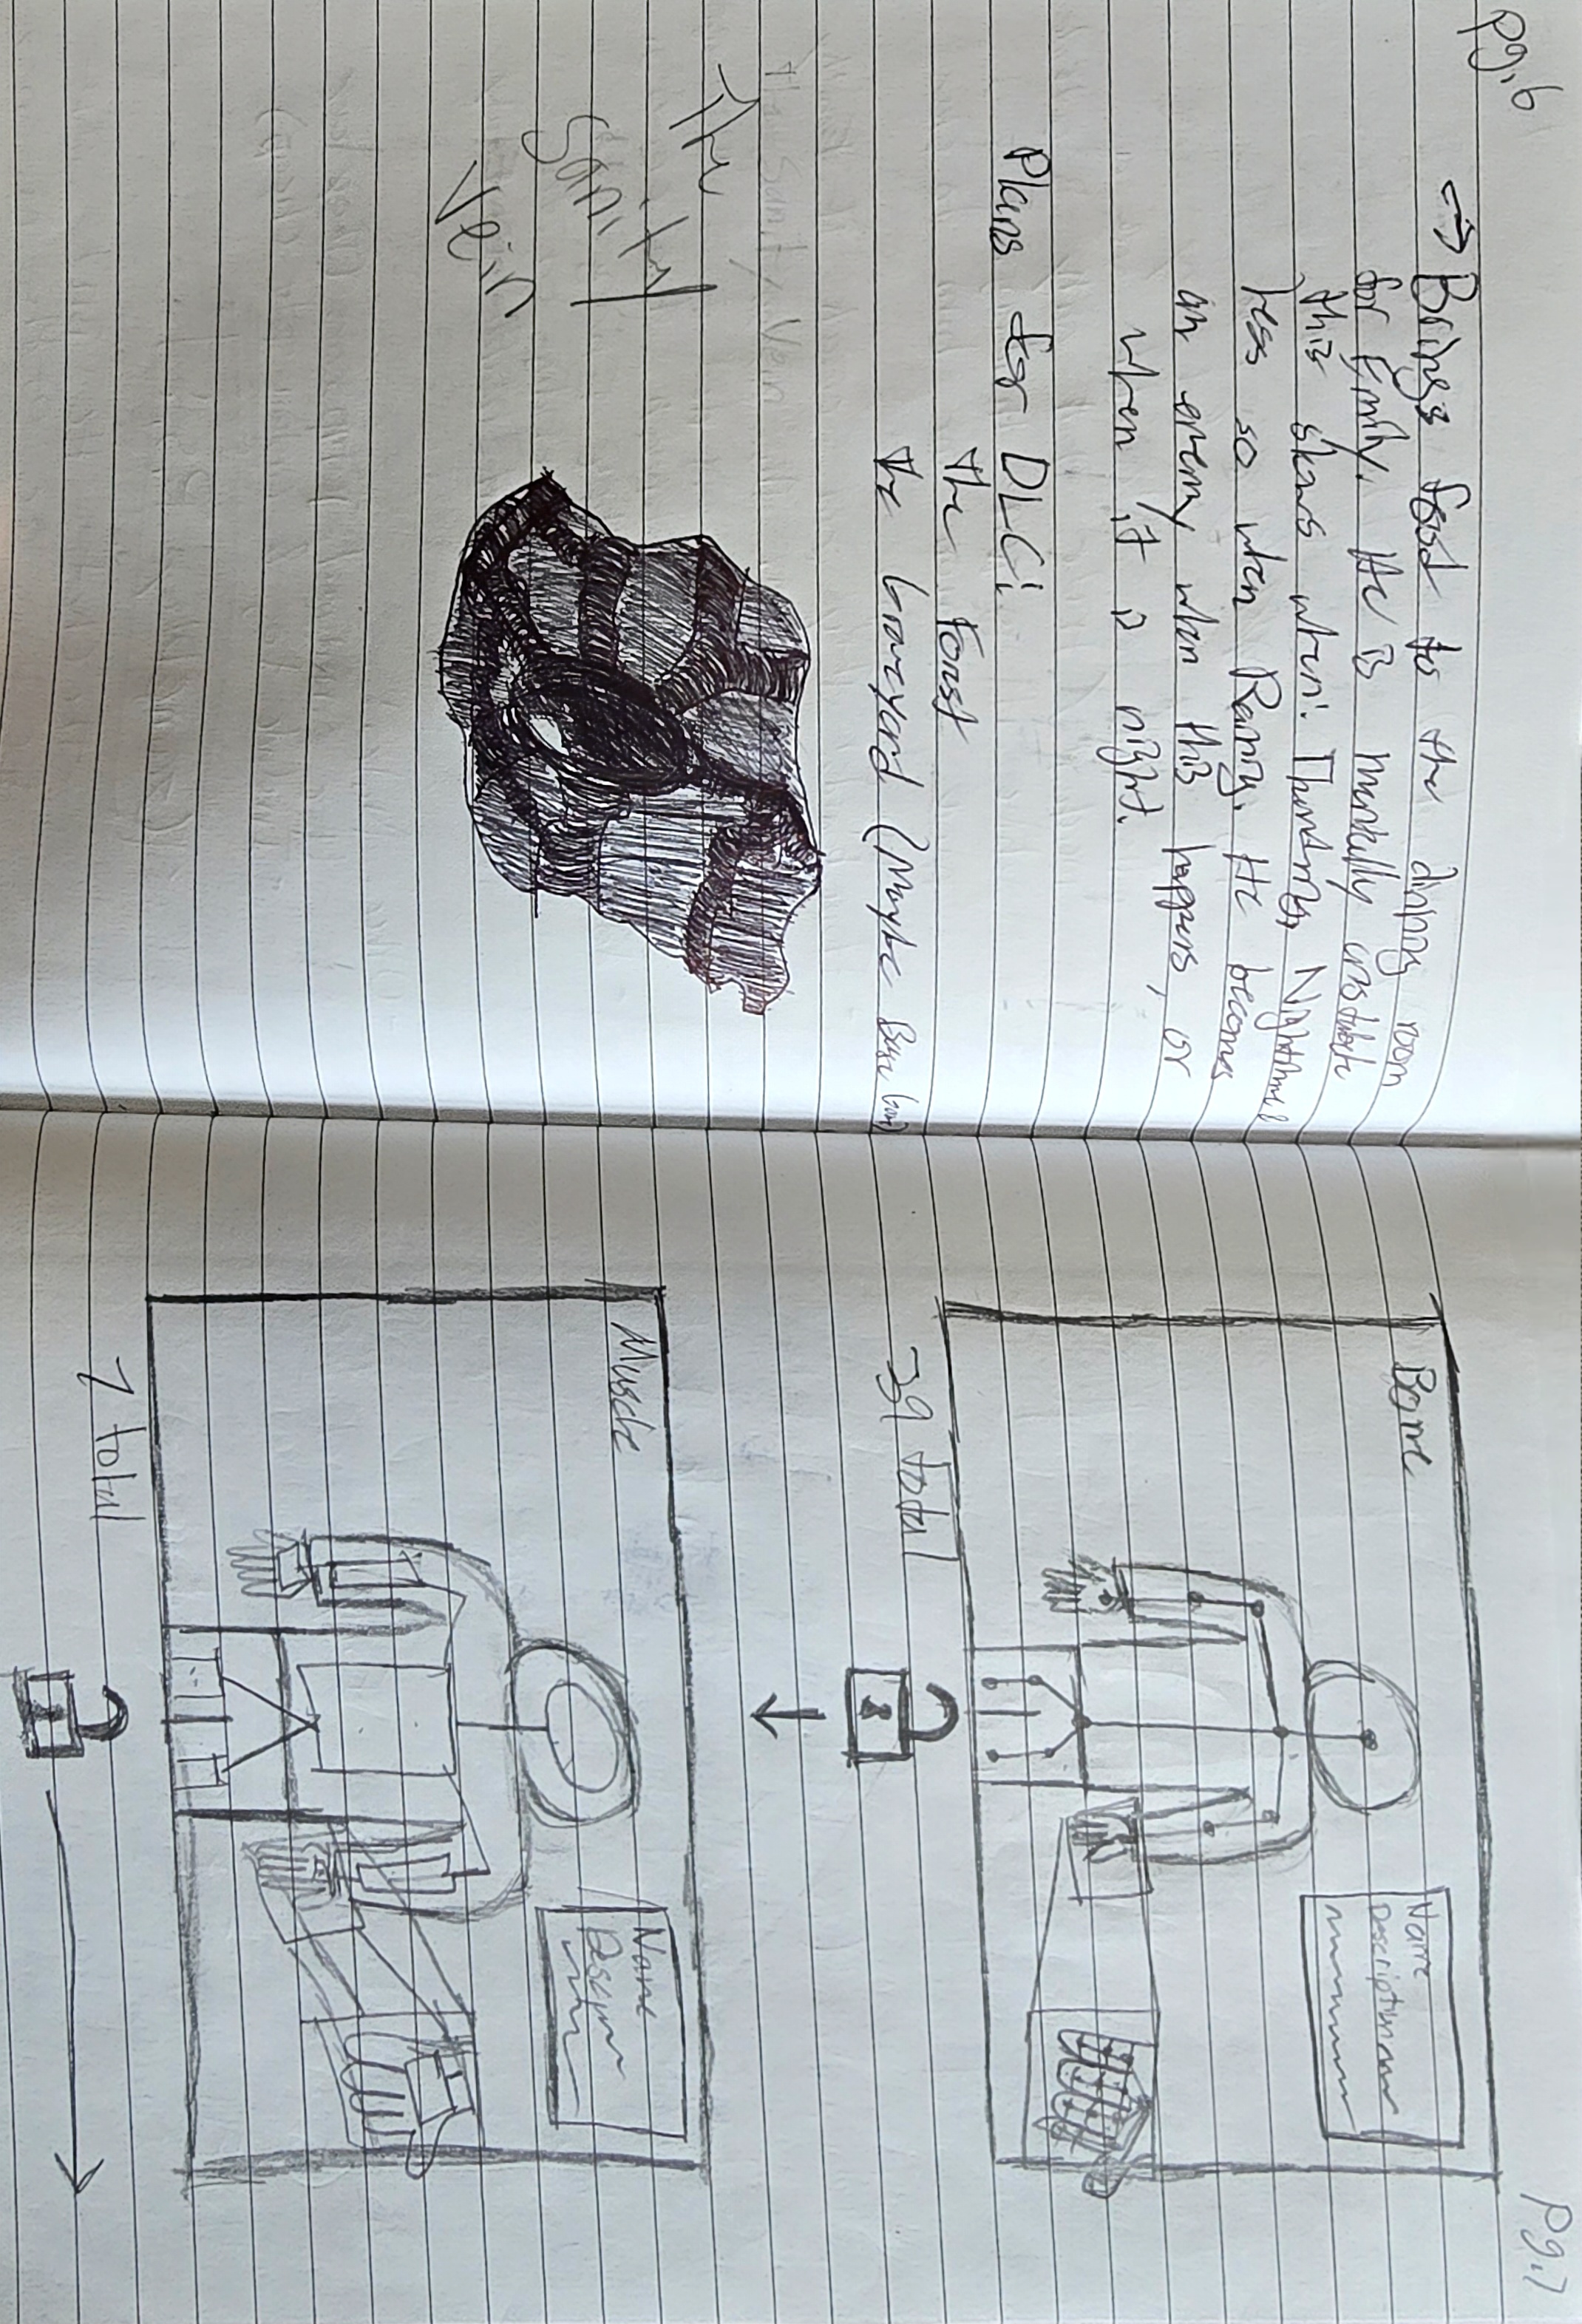 pg.6
→ Brings food to the dinning room
for Emily. He is mentally unstable
this shows when: Thundring, Nighttime &
less so when Rainy. He becomes
an enemy when this happens, or
when it is night.
Plans for DLC:
The Forest
The Graveyard (Maybe Base Game)
The Sanity Vein
The
Sanity
Vein
Pg.7
Bone
Name
Description
39 total
Muscle
Name
Desc
7 total